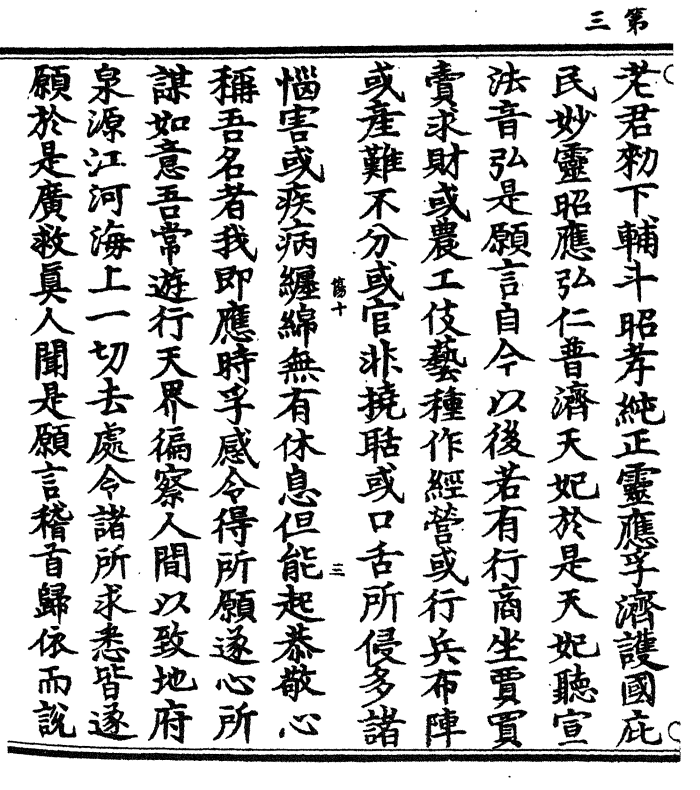 第三
老君勑下輔斗昭孝純正靈應孚濟護國庇
民妙靈昭應弘仁普濟天妃於是天妃聽宣
法音弘是願言自今以後若有行商坐賈買
賣求財或農工伎藝種作經營或行兵布陣
或產難不分或官非撓聒或口舌所侵多諸
傷十
三
惱害或疾病纏綿無有休息但能起恭敬心
稱吾名者我即應時孚感令得所願遂心所
謀如意吾常遊行天界徧察人間以致地府
泉源江河海上一切去處令諸所求悉皆遂
願於是廣救真人聞是願言稽首歸依而說